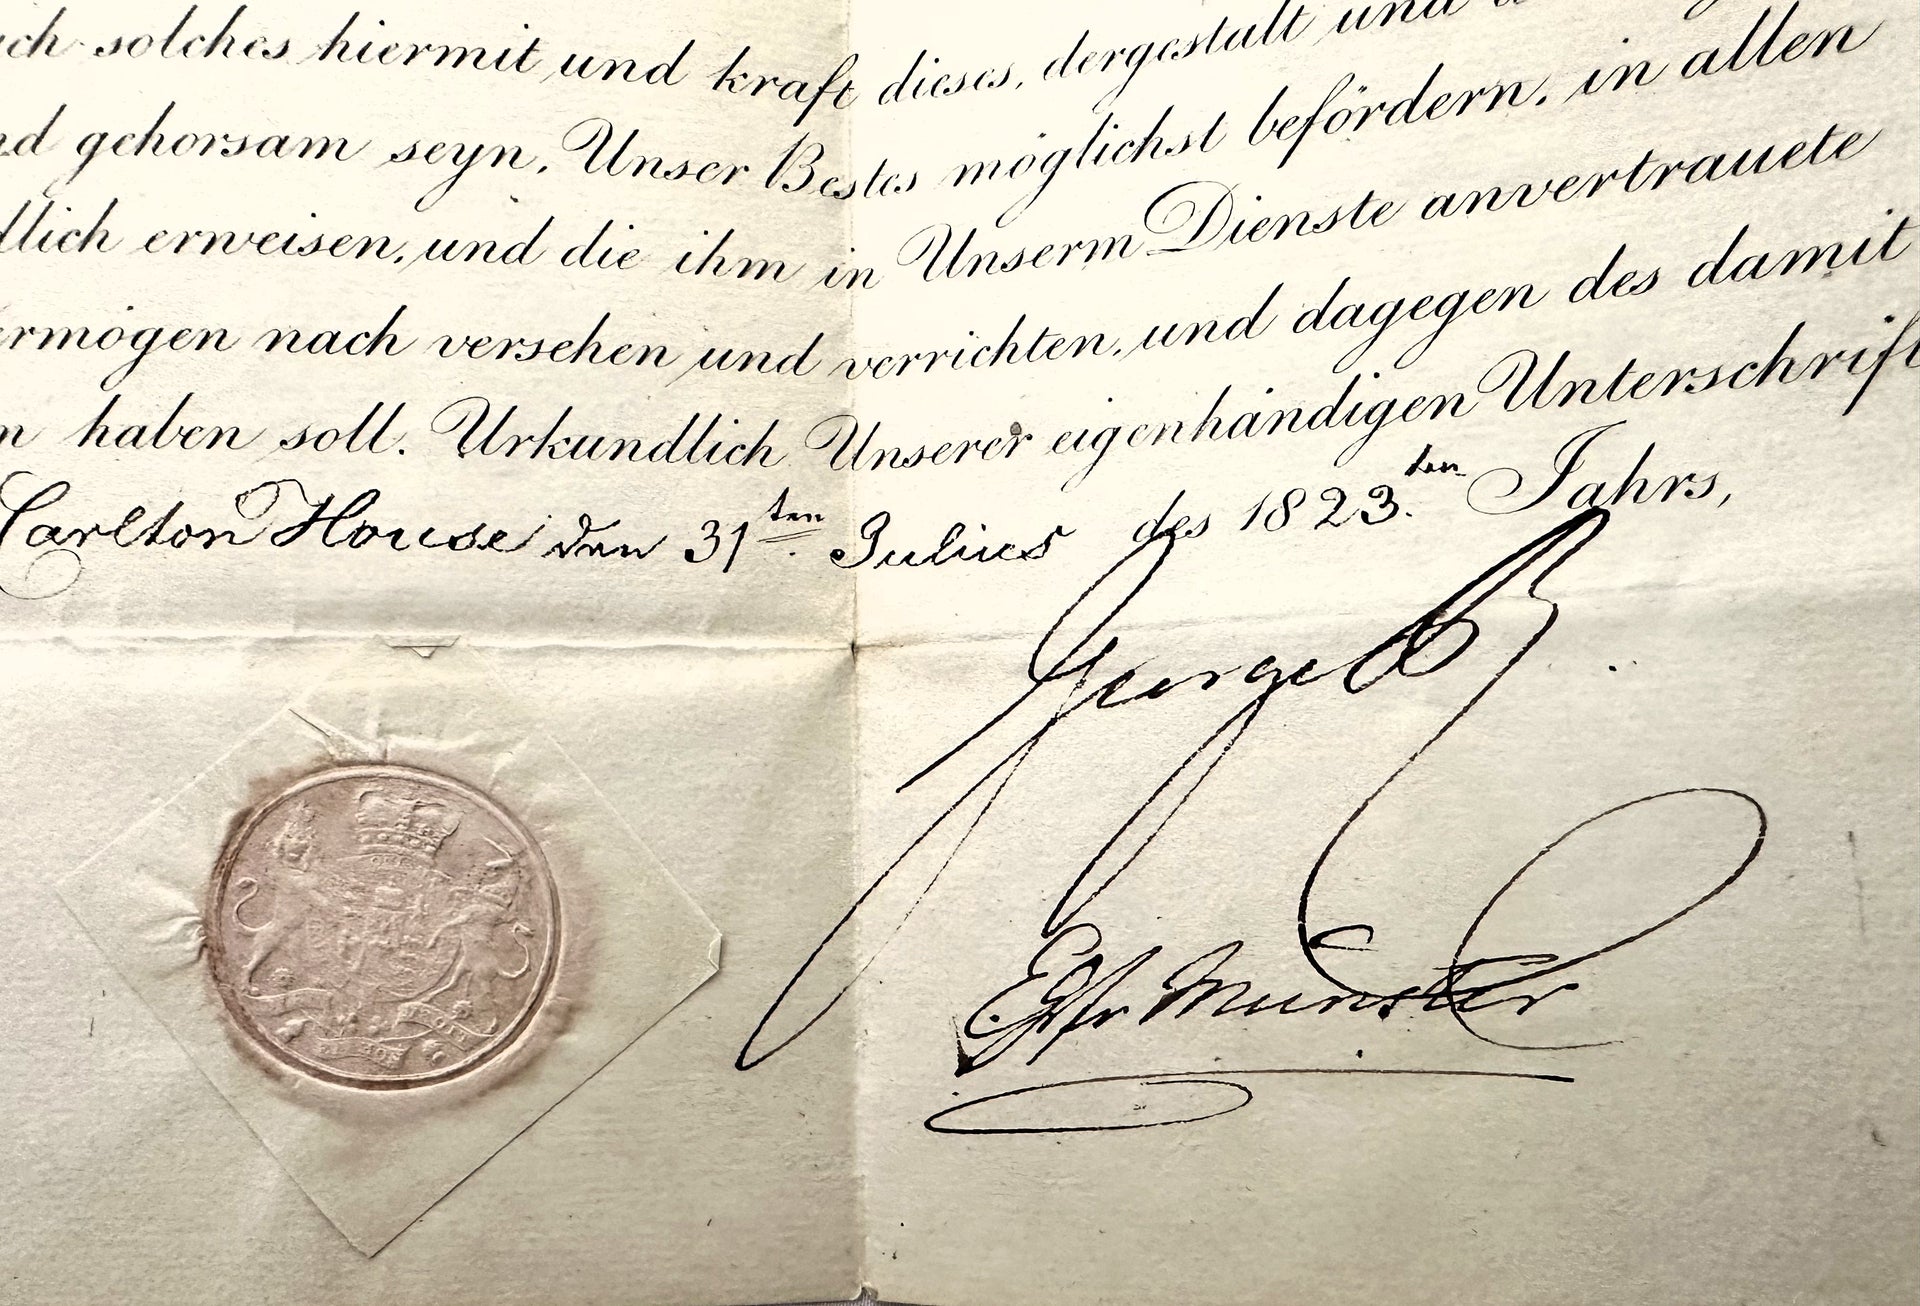 solches hiermit und kraft dieses, dergestalt und
gehorsam seyn, Unser Bestes möglichst befördern, in allen
erweisen, und die ihm in Unserm Dienste anvertrauete
nach versehen und verrichten, und dagegen des damit
haben soll. Urkundlich Unserer eigenhändigen Unterschrift
Carlton House den 31ten Julius des 1823.ten Jahrs,
George R
Münster